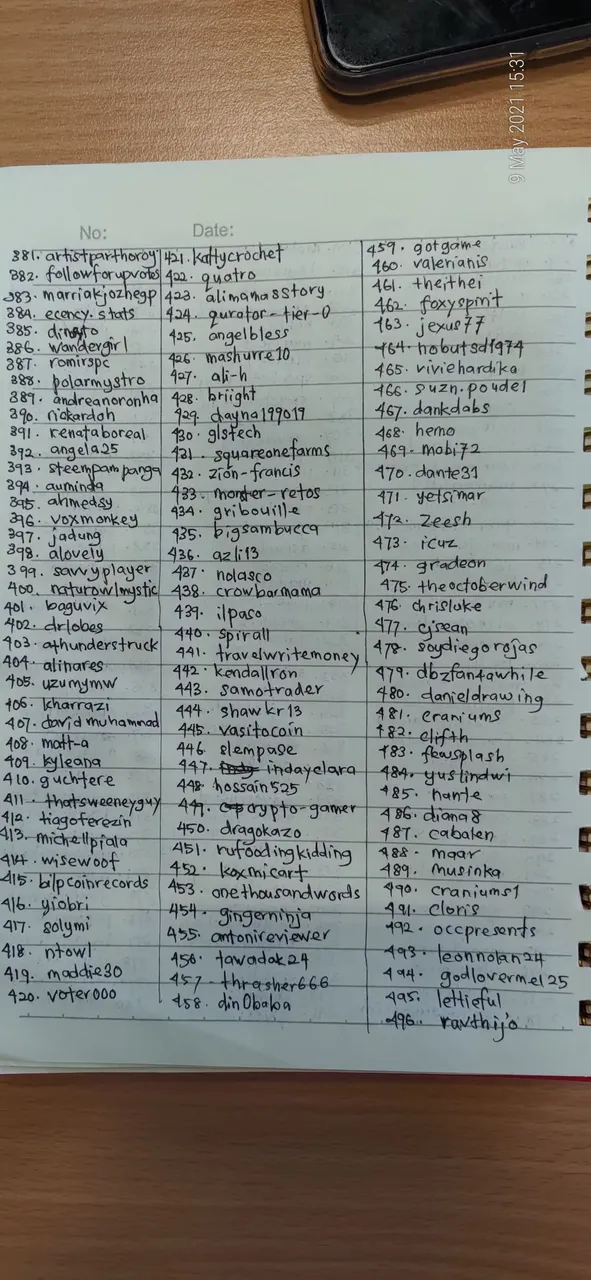 9 May 2021 15:31
No: Date:
381. artistparthoroy
382. followforupvotes
383. marriakjozhegp
384. ecency.stats
385. dinasto
386. wandergirl
387. romirspc
388. polarmystro
389. andreanoronha
390. rickardoh
391. renataboreal
392. angela25
393. steempampanga
394. auminda
395. ahmedsy
396. voxmonkey
397. jadung
398. alovely
399. savvyplayer
400. naturowlmystic
401. baguvix
402. drlobes
403. athunderstruck
404. alinares
405. uzumymw
406. kharrazi
407. david muhammad
408. matt-a
409. kyleana
410. guchtere
411. thatsweeneyguy
412. tiagoferezin
413. michellpiala
414. wisewoof
415. bilpcoinrecords
416. yiobri
417. solymi
418. ntowl
419. maddie30
420. voter000
421. kattycrochet
422. quatro
423. alimamasstory
424. qurator-tier-0
425. angelbless
426. mashurre10
427. ali-h
428. briight
429. dayna199019
430. glstech
431. squareonefarms
432. zion-francis
433. monster-retos
434. gribouille
435. bigsambucca
436. azli13
437. nolasco
438. crowbarmama
439. ilpaso
440. spirall
441. travelwritemoney
442. kendallron
443. samotrader
444. shawkr13
445. vasitocoin
446. elempase
447. indayclara
448. hossain525
449. crypto-gamer
450. dragokazo
451. rufoodingkidding
452. koxmicart
453. onethousandwords
454. gingerninja
455. antonireviewer
456. tawadak24
457. thrasher666
458. din0baba
459. gotgame
460. valerianis
461. theithei
462. foxyspirit
463. jexus77
464. nobutsd1974
465. viviehardika
466. suzn.poudel
467. dankdabs
468. hemo
469. mobi72
470. dante31
471. yetsinar
472. zeesh
473. icuz
474. gradeon
475. theoctoberwind
476. chrisluke
477. cjsean
478. soydiegorojas
479. dbzfan4awhile
480. danieldrawing
481. craniums
482. elifth
483. fewsplash
484. yuslindwi
485. hante
486. diana8
487. cabalen
488. maar
489. musinka
490. craniums1
491. cloris
492. occpresents
493. leonnolan24
494. godlovermel25
495. lettieful
496. ravthijo